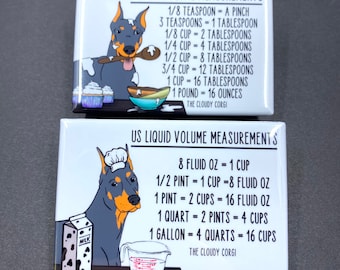 MEASUREMENTS
1/8 TEASPOON = A PINCH
3 TEASPOONS = 1 TABLESPOON
1/8 CUP = 2 TABLESPOONS
1/4 CUP = 4 TABLESPOONS
1/2 CUP = 8 TABLESPOONS
3/4 CUP = 12 TABLESPOONS
1 CUP = 16 TABLESPOONS
1 POUND = 16 OUNCES
THE CLOUDY CORGI
US LIQUID VOLUME MEASUREMENTS
8 FLUID OZ = 1 CUP
1/2 PINT = 1 CUP = 8 FLUID OZ
1 PINT = 2 CUPS = 16 FLUID OZ
1 QUART = 2 PINTS = 4 CUPS
1 GALLON = 4 QUARTS = 16 CUPS
THE CLOUDY CORGI
MILK